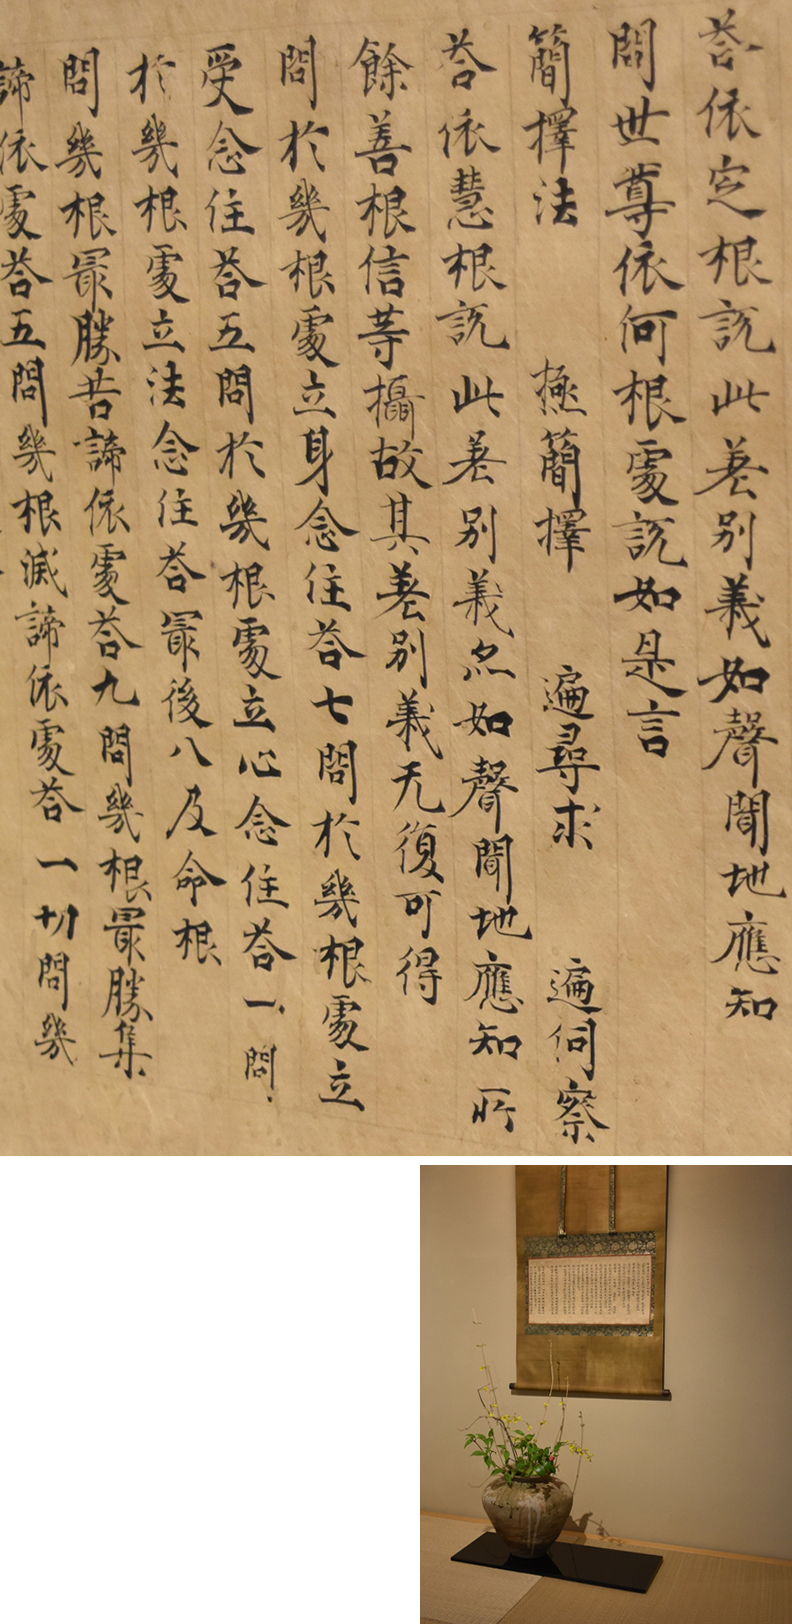 荅依定根説此差別義如聲聞地應知
問世尊依何根處説如是言
簡擇法 極簡擇 遍尋求 遍伺察
荅依慧根説此差別義亦如聲聞地應知所
餘善根信等攝故其差別義无復可得
問於幾根處立身念住荅七問於幾根處立
受念住荅五問於幾根處立心念住荅一問
於幾根處立法念住荅最後八及命根
問幾根最勝苦諦依處荅九問幾根最勝集
諦依處荅五問幾根滅諦依處荅一切問幾